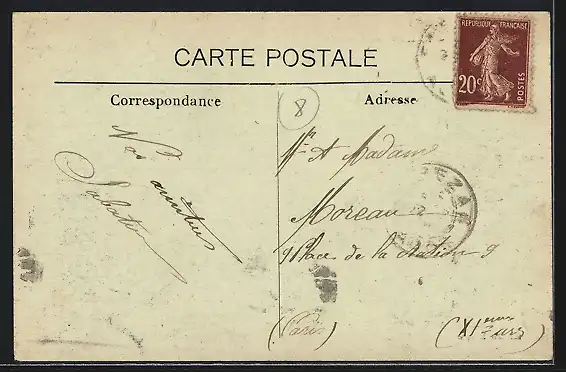 CARTE POSTALE
REPUBLIQUE FRANÇAISE
20c POSTES
Correspondance
Adresse
8
Nos amitiés
Sabatier
Mr & Madame
Moreau
9 Place de la 9
(Paris)
(XIeme arr)